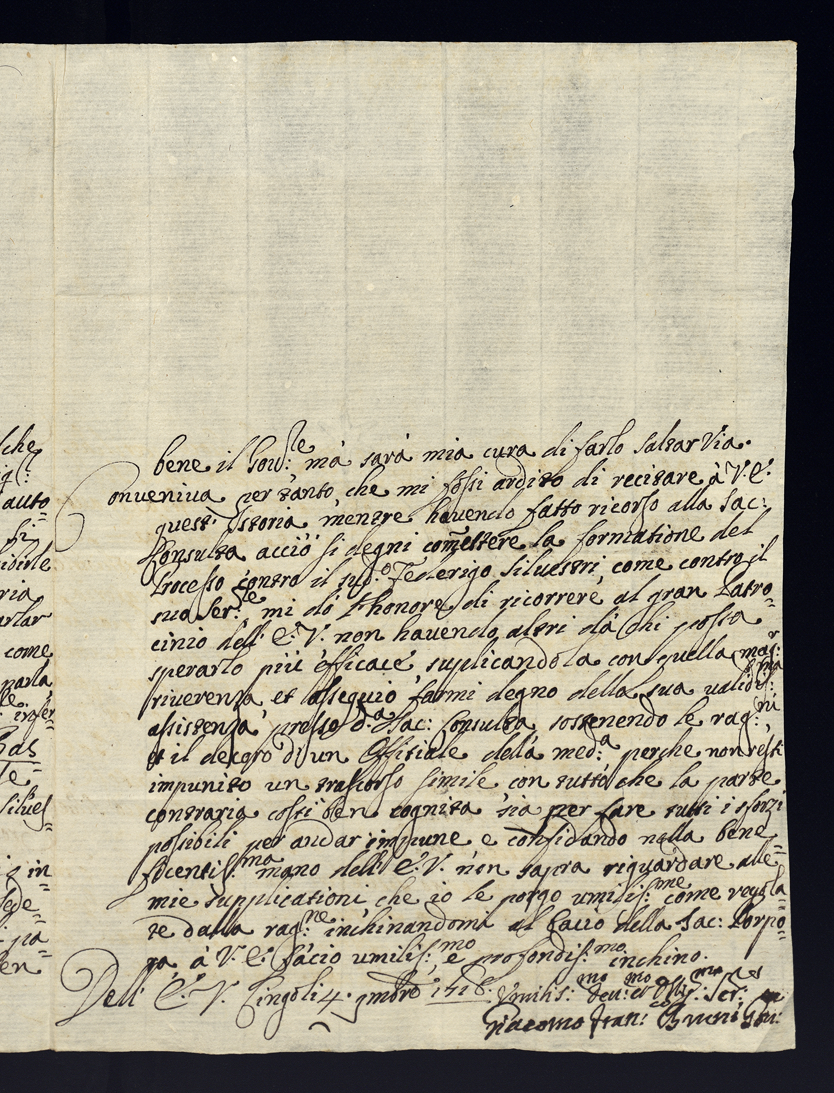 lche
auto=
ria
come
parla
Silves=
g in=
bene il Gov:re mà sarà mia cura di farlo saltar via.
Conveniva per tanto, che mi fossi ardito di recitare à V.E.
quest' Istoria, mentre havendo fatto ricorso alla Sac:
Consulta acciò si degni com̃ettere la formatione del
Processo contro il sud.o Federigo Silvestri, come contro il
suo Ser:re mi dò l'honore di ricorrere al gran Patro=
cinio dell' E. V. non havendo altri da chi possa
sperarlo più efficace supplicandola con quella mag:r
riverenza et ossequio farmi degno della sua validis:ma
assistenza presso d.a Sac: Consulta sostenendo le rag:ni
et il decoro di un Offitiale della med:a perche non resti
impunito un trascorso simile con tutto che la parte
contraria costì ben cognita sia per fare tutti i sforzi
possibili per andar impune e confidando nella bene=
ficentis:ma mano dell' E. V. non saprà riguardare alle
mie supplicationi che io le porgo umilis:me come regola=
te dalla rag:ne inchinandomi al bacio della Sac: Porpo=
ra à V. E. facio umilis:mo e profondis:mo inchino.
Dell' E. V. Cingoli 4. 9mbre 1718. Umilis:mo dev:mo et Obl:mo Ser:re
Giacomo Fran:co Bruni Gov: